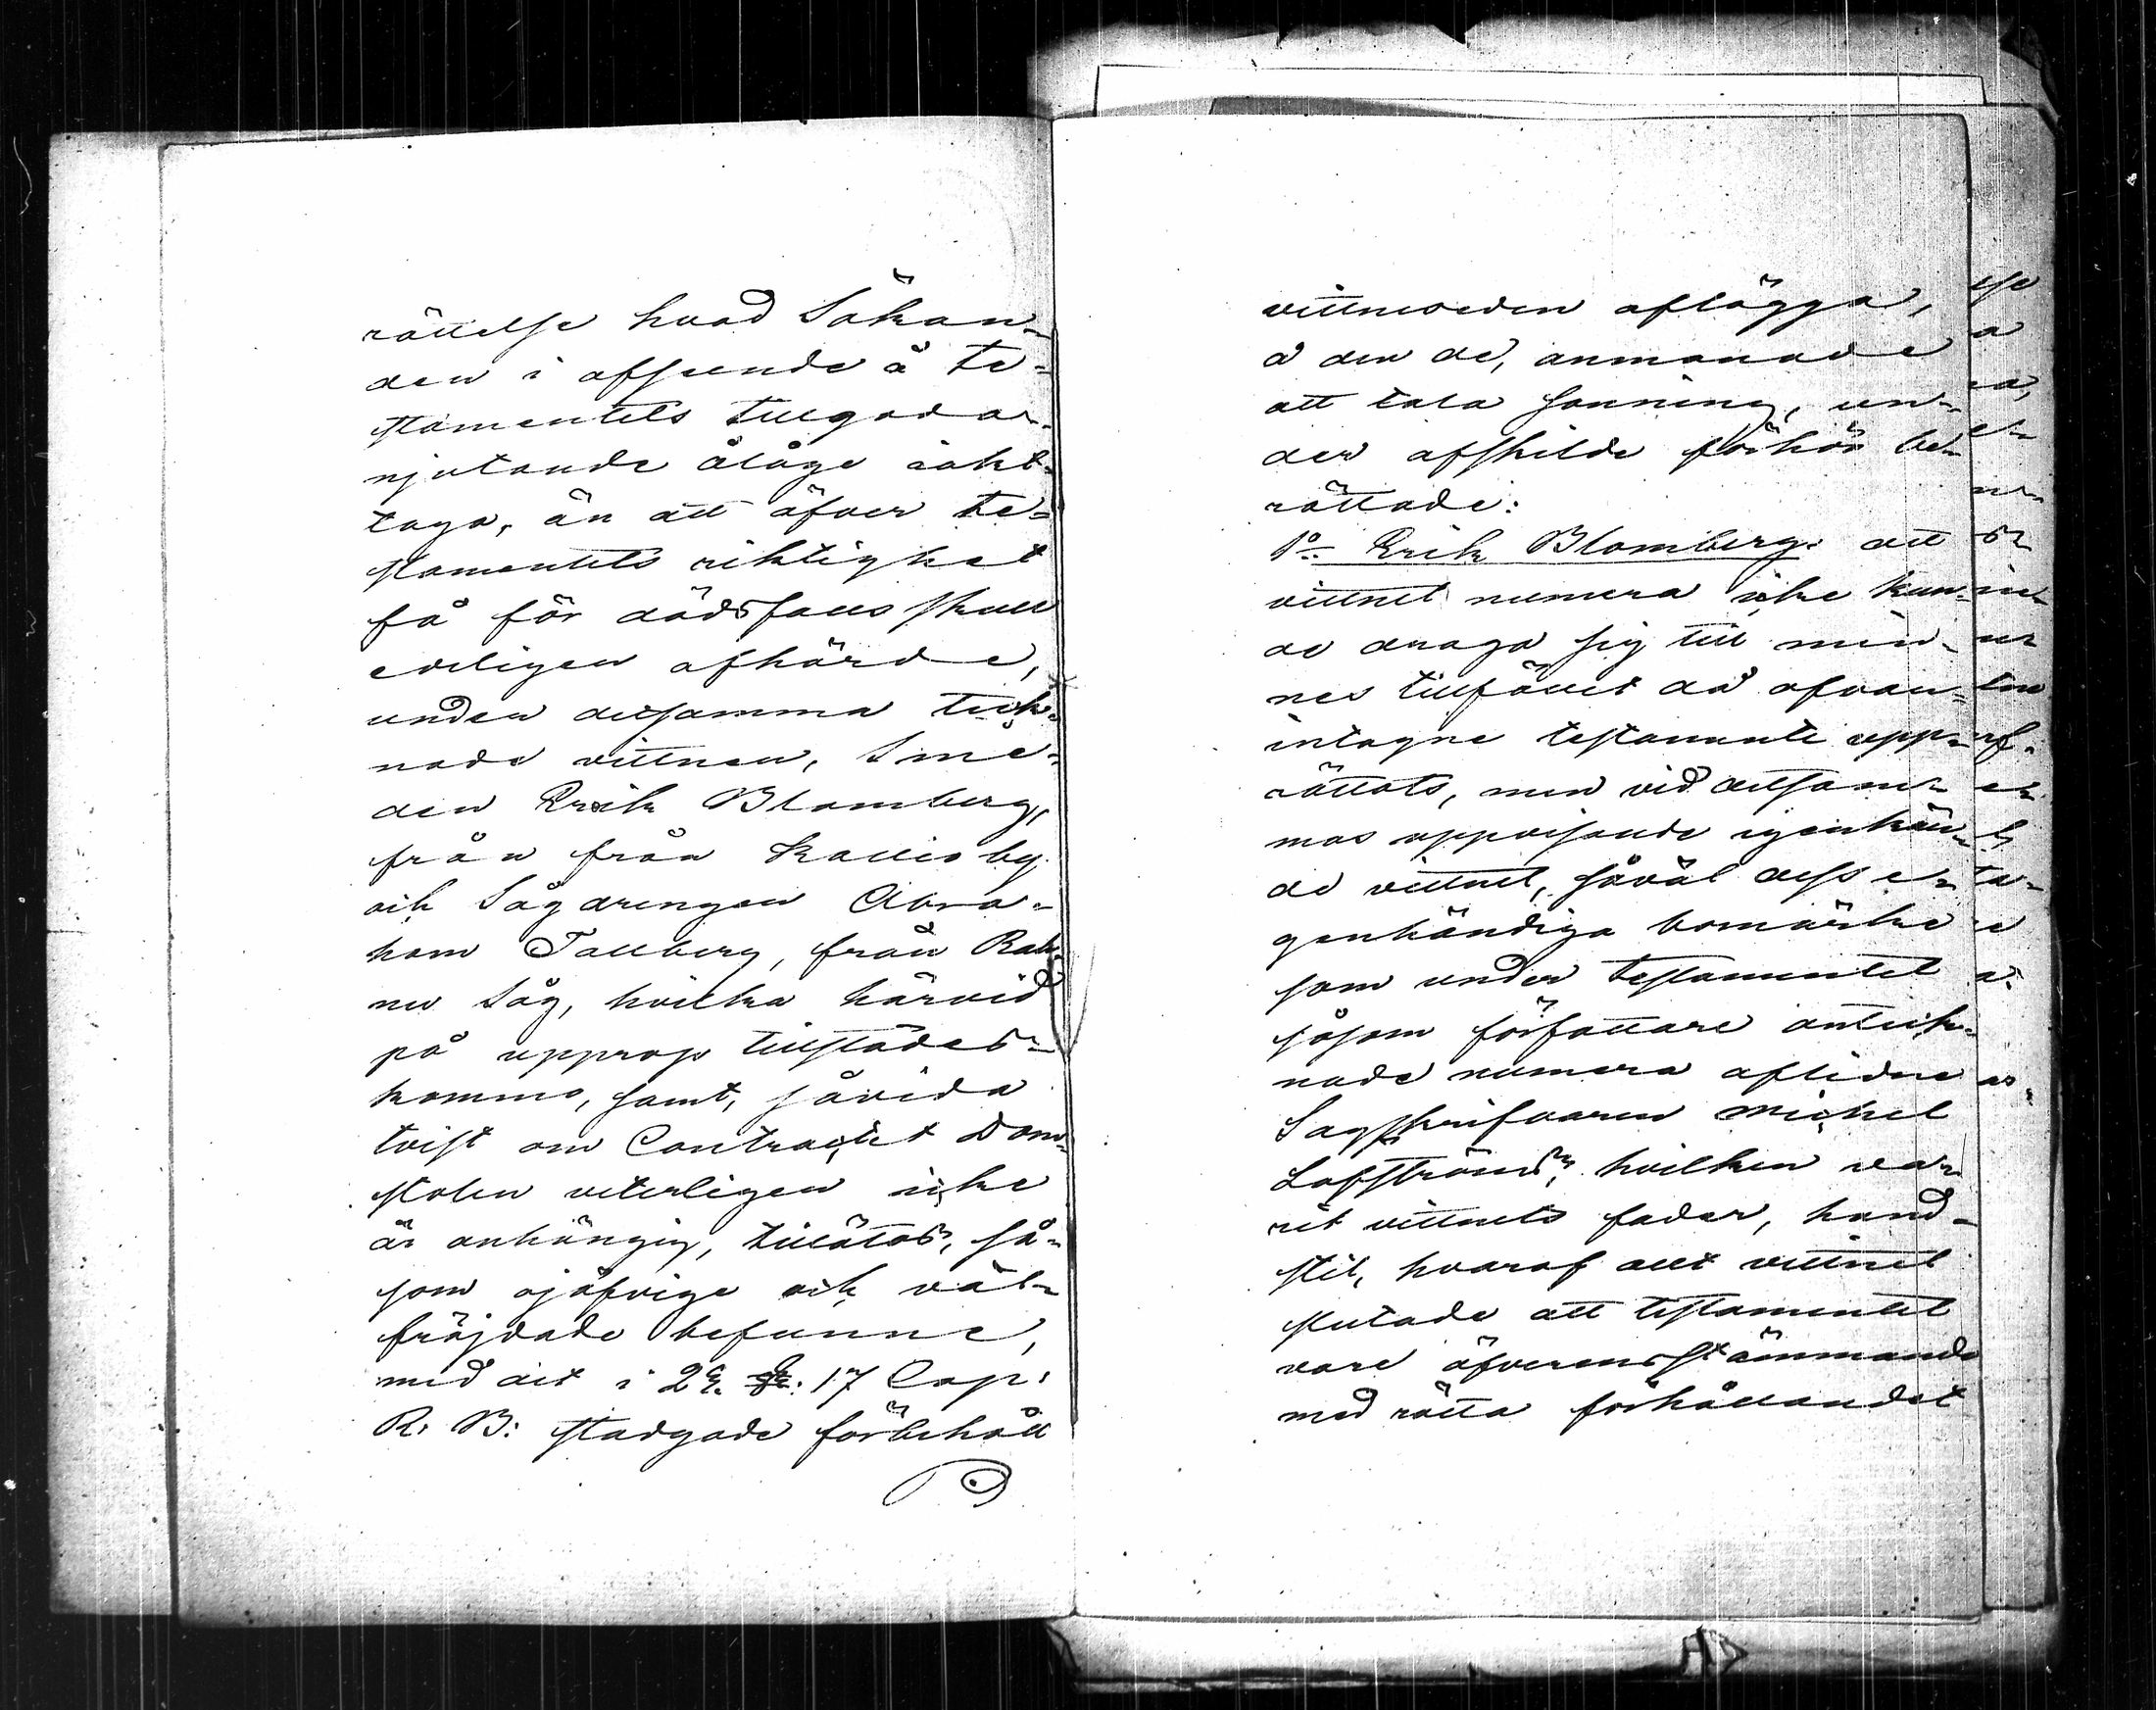 rättelse hvad Sökan-
den i afseende å te-
stamentets tillgodo-
njutande ålåge iakt-
taga, än att öfver te-
stamentets riktighet
få för dödsfalls skull
edeligen afhörde,
under detsamma teck-
nade vittnen, Sme-
den Erik Blomberg,
från från Kallis by
och Sågdrengen Abra-
ham Tallberg, från
Såg, hvilka härvid
på upprop tillstädes-
kommo, samt, såvida
tvist om Contractet Dom-
stolen veterligen icke
är anhängig, tillätos, så-
som ojäfvige och väl-
fräjdade befunne,
med det i 2 §. 17 Cap.
R. B: stadgade förbehåll
vittneseden aflägga,
å den de, anmanade
att tala sanning, un-
der afskilde förhör be-
rättade:
1o Erik Blomberg: att
vittnet numera icke kun-
de draga sig till min-
nes tillfället då ofvan-
intagne testamente upp-
rättats, men vid detsam-
mas uppvisande igenkän-
de vittnet, såväl dess e-
genhändiga bomärke
som under testamentet
såsom författare anteck-
nade numera aflidne
Sagskrifvaren Michel
Lofströms, hvilken va-
rit vittnets fader, hand-
stil, hvaraf allt vittnet
slutade att testamentet
vare öfverensstämmande
med rätta förhållandet